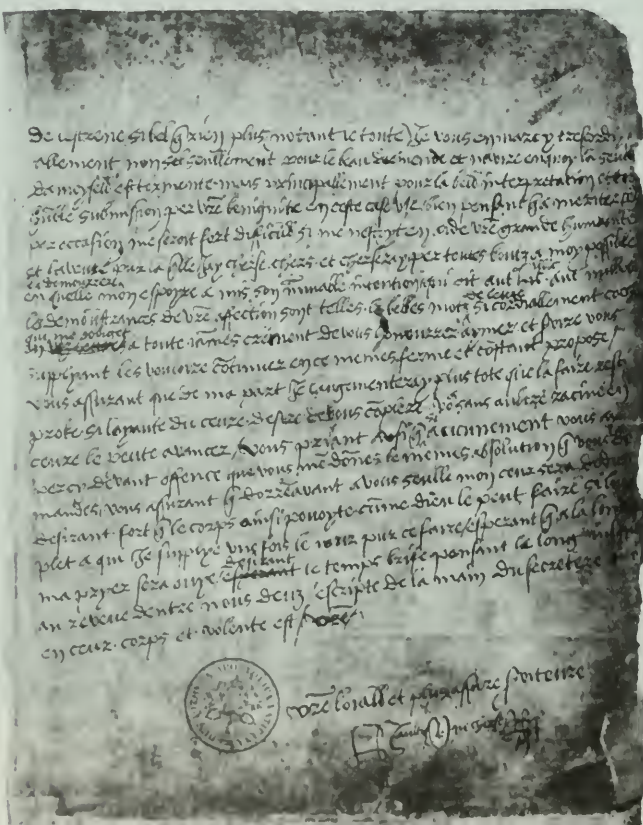 De l'estrene si bel q̃ rien plus notant le toute Je vous en marcy tres cordi
allement non seullement pour le bau diamende et navire en quoy la seulet
damoysell est tormente mais principallement pour la bell interpretation et tro
humble submission per vr̃e benignite en ceste case use bien pensant q̃ a meriter ce
par occasion me seroit fort difficile si me nestoyt en aide vr̃e grande humanite
et faveur pur la quelle Jay cherse chers et cherseray per toutes bontez a moy possible
la demeurrer
en quelle mon espoyre a mis son immuable intention qui dit aut illic aut nullibi
les demonstrances de vr̃e affection sont telles les belles mots de letre si cordiallement couch
qui me obliget a toute james vrement de vous honourrer aimer et servire vous
suppliant les vouloire continuer en ce memes ferme et constant propose
vous assurant que de ma part Je l'augmenteray plus tote que la faire resi
proke si loyaute du ceure desire de vous complere sans aultre racine en
ceure le peute avancer vous priant aussi q̃ si aucunement vous ay
per cy devant offence que vous me donnes le memes absolution q̃ vous de
mandes vous assurant q̃ dorrenavant a vous seulle mon ceur sera dedie
desirant fort q̃ le corps ainsi povoyt comme dieu le peut faire si luy
plet a qui Je supplye uns fois le iour pur ce faire esperant q̃ a la long
ma pryer sera ouye desirant le temps brife pensant le long jusque
au reveue dentre nous deuz escripte de la main du secretere
en ceur corps et volente est
vr̃e loiall et plus assure serviteure
H aultre AB ne cherse R